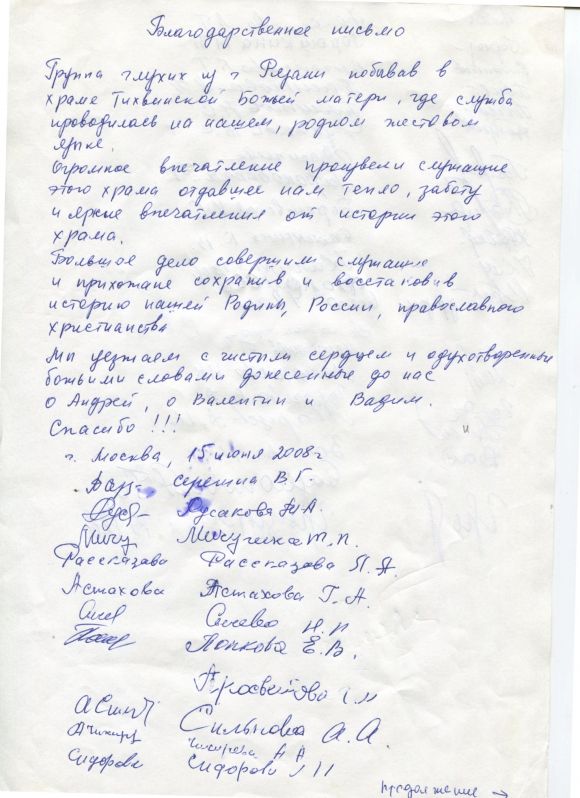 Благодарственное письмо
Группа глухих из г Рязани побывав в
храме Тихвинской Божьей матери, где служба
проводилась на нашем, родном жестовом
языке.
Огромное впечатление произвели служащие
этого храма отдавшее нам тепло, заботу
и яркие впечатления от истории этого
храма.
Большое дело совершили служащие
и прихожане сохранив и восстановив
историю нашей Родины, России, православного
христианства
Мы уезжаем с чистым сердцем и одухотворенные
божьими словами донесенные до нас
о Андрей, о Валентин и Вадим.
Спасибо !!!
г. Москва, 15 июня 2008г
Серегина В.Г.
Русакова Н.А.
Мичу Т.П.
Рассказова Рассказова Л.А.
Астахова Астахова Г.А.
Н.П
Попкова Е.В.
АСил А.А.
Чикирева А А
Сидорова Сидорова
продолжение →